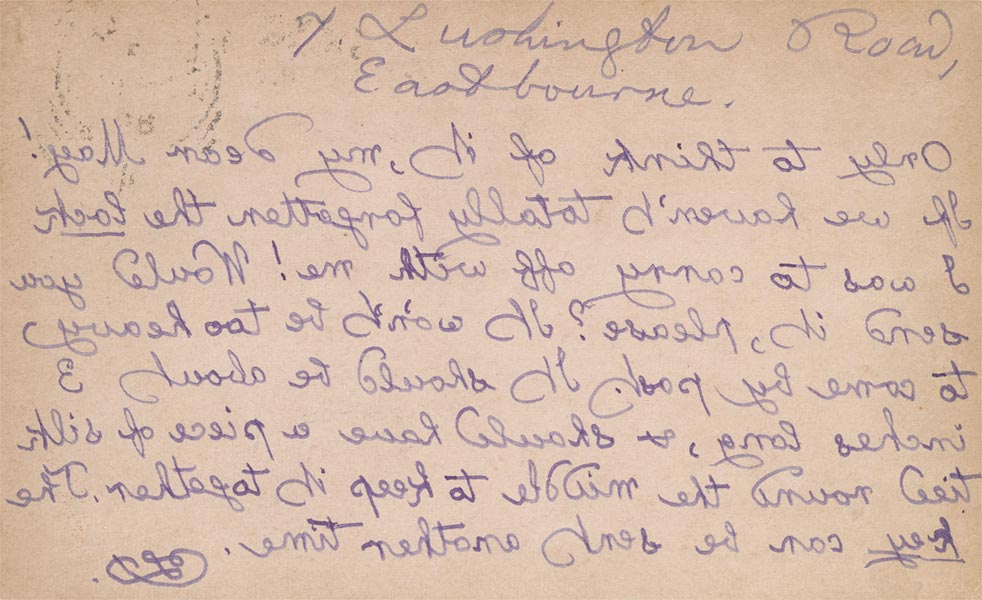 7. Lushington Road,
Eastbourne.
Only to think of it, my dear May!
If we haven't totally forgotten the lock
I was to carry off with me! Would you
send it, please? It won't be too heavy
to come by post. It should be about 3
inches long, & should have a piece of silk
tied round the middle to keep it together. The
key can be sent another time.
CLD.